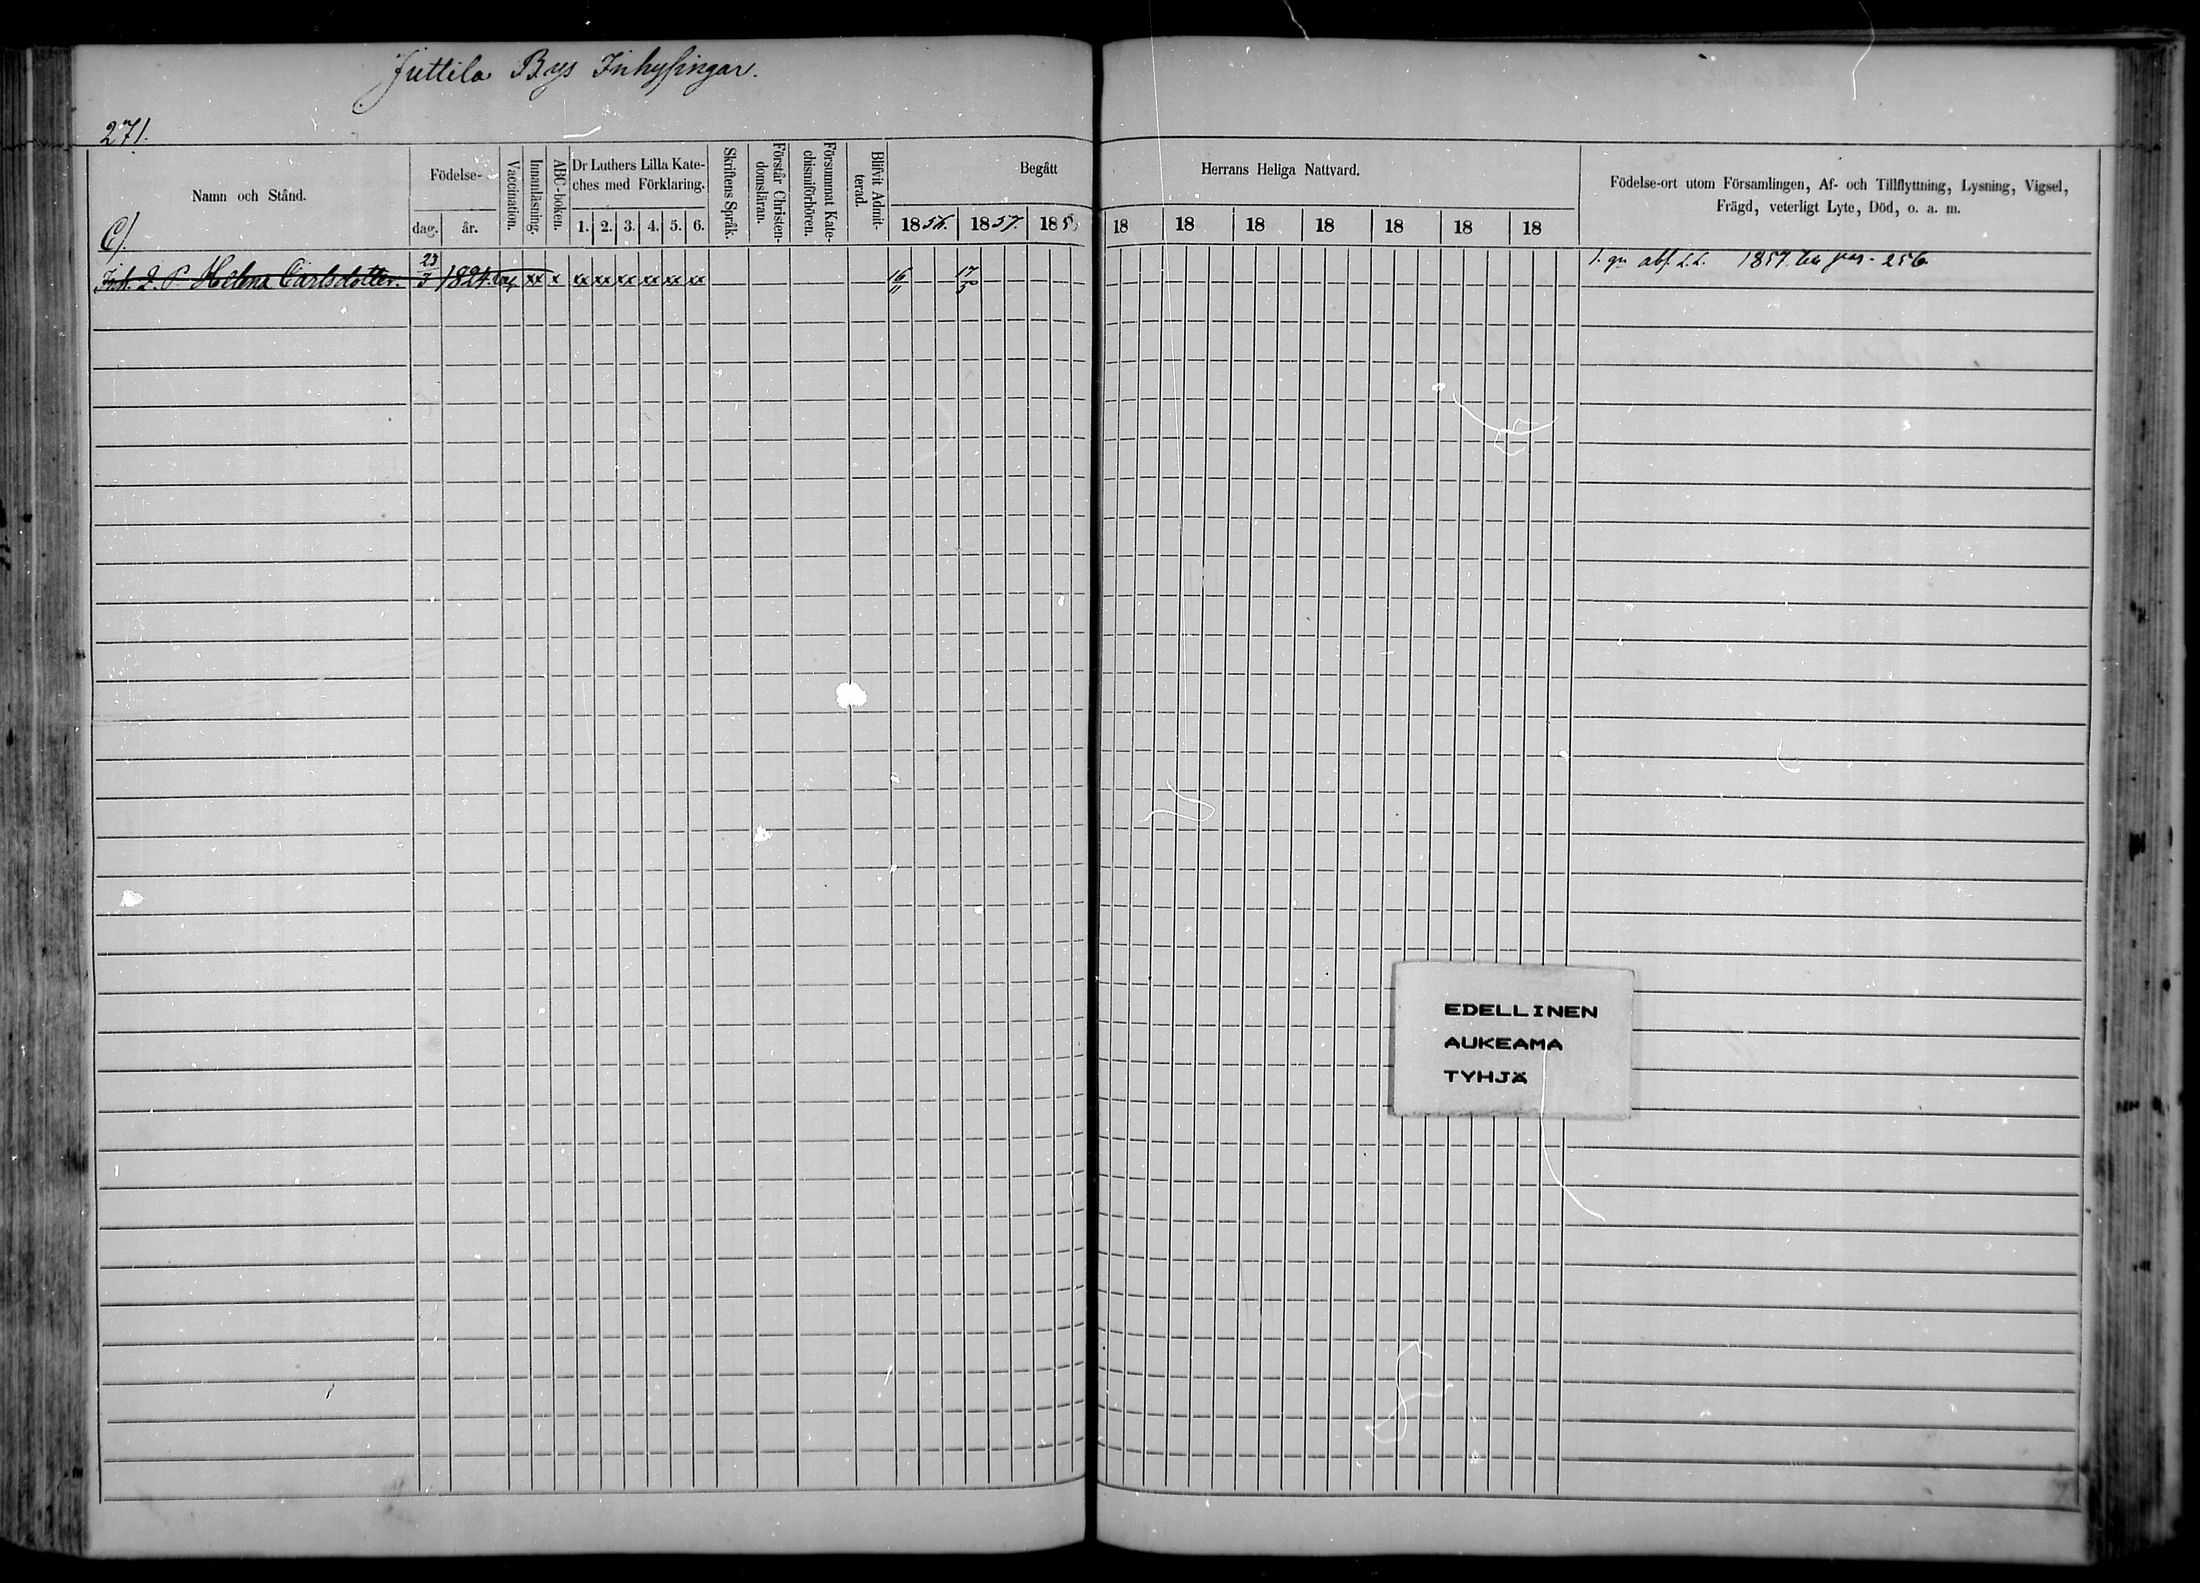 Juttila Bys Inhysingar.
271.
Namn och Stånd.
Födelse-
dag.
år.
Vaccination.
Innanläsning.
ABC-boken.
Dr Luthers Lilla Kate-
ches med Förklaring.
1. 2. 3. 4. 5. 6.
Skriftens Språk.
Förstår Christen-
domsläran.
Försummat Kate-
chismiförhören.
Blifvit Admit-
terad.
Begått Herrans Heliga Nattvard.
1856. 1857. 185 18 18 18 18 18 18 18
Födelse-ort utom Församlingen, Af- och Tillflyttning, Lysning, Vigsel,
Frägd, veterligt Lyte, Död, o. a. m.
C).
Helena Carlsdotter. 23/3 1824. xx x xx xx xx xx xx xx 16/11 17/5 1857. 256.
EDELLINEN
AUKEAMA
TYHJÄ